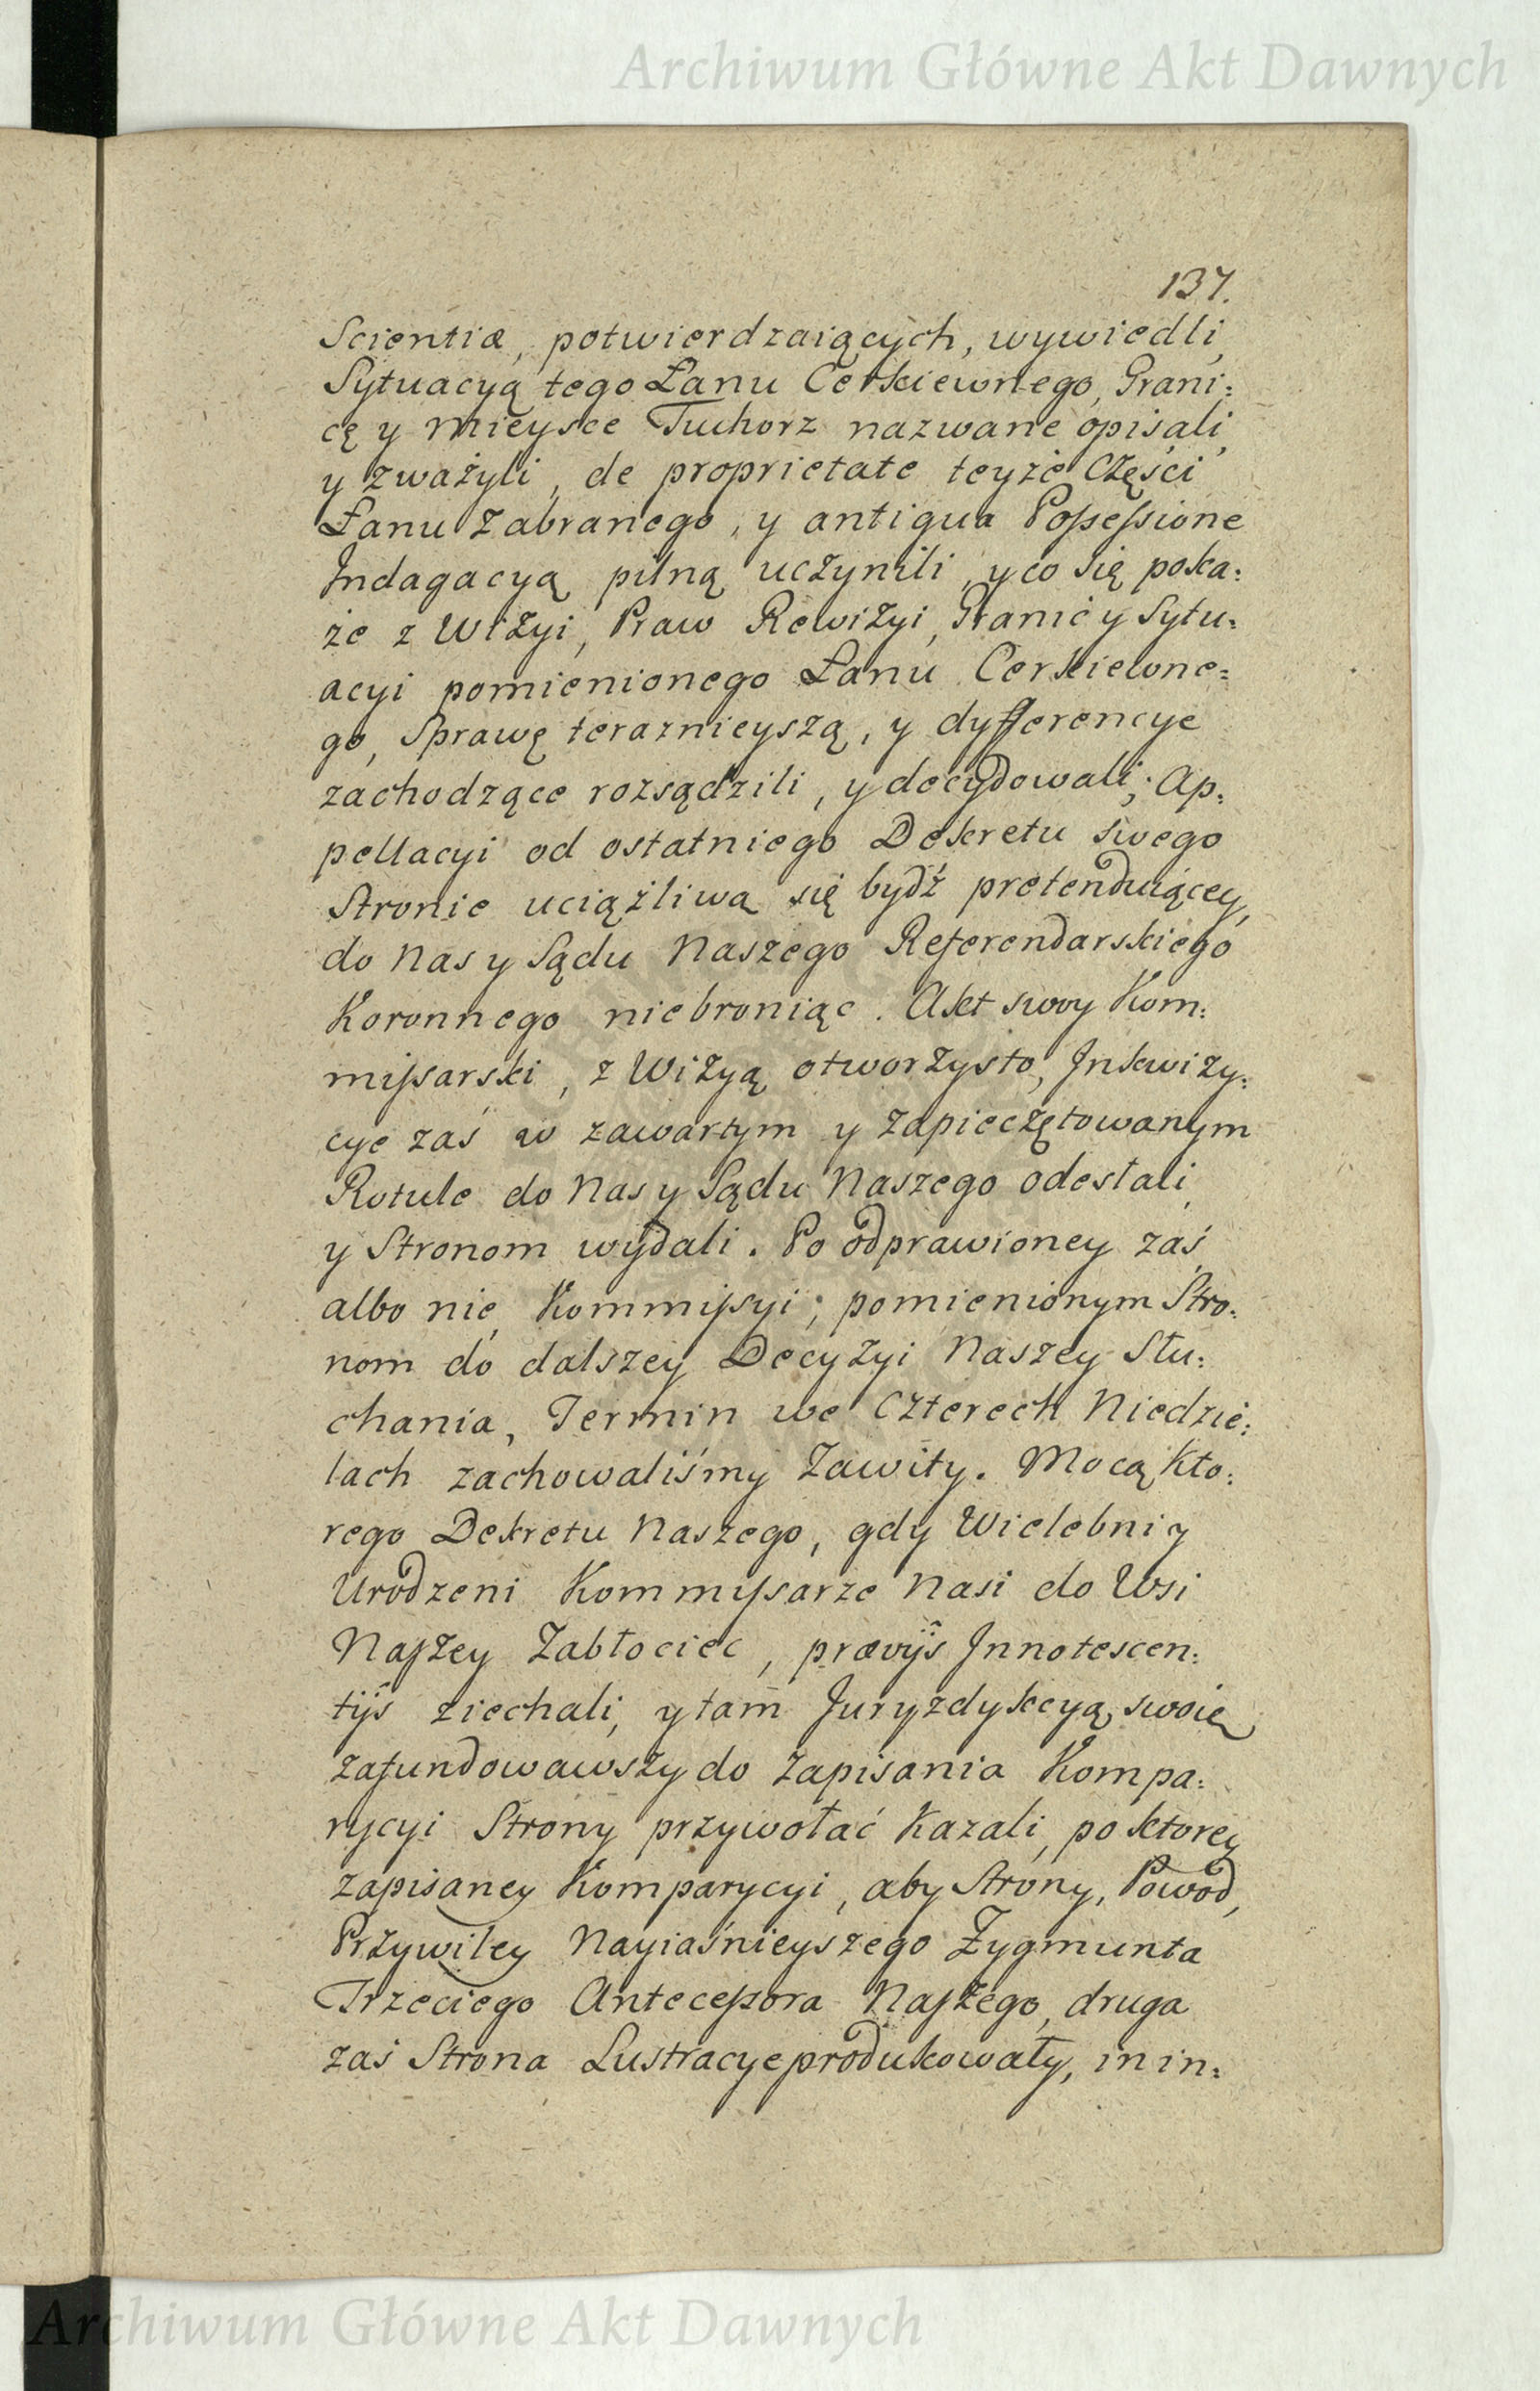 Archiwum Główne Akt Dawnych
137.
Scientiæ, potwierdzaiących, wywiedli,
Sytuacyą tego Łanu Cerkiewnego, Grani:
cę y Mieysce Tuchorz nazwane opisali,
y zważyli, de proprietate teyże Części
Łanu zabranego, y antiqua Possessione
Indagacyą pilną uczynili, y co się poka:
że z Wizyi, Praw Rewizyi, Granic y Sytu:
acyi pomienionego Łanu Cerkiewne:
go, Sprawę teraznieyszą, y dyfferencye
zachodzące rozsądzili, y decydowali; Ap:
pellacyi od ostatniego Dekretu swego
Stronie uciążliwą się bydź pretenduiącey,
do Nas y Sądu Naszego Referendarskiego
Koronnego niebroniąc. Akt swoy Kom:
missarski, z Wizyą otworzysto, Inkwizy:
cye zaś w zawartym y zapieczętowanym
Rotule do Nas y Sądu Naszego odesłali,
y Stronom wydali. Po odprawioney zaś,
albo nie, Kommissyi; pomienionym Stro:
nom do dalszey Decyzyi Naszey Słu:
chania, Termin we Czterech Niedzie:
lach zachowaliśmy Zawity. Mocą kto:
rego Dekretu Naszego, gdy Wielebni y
Urodzeni Kommyssarze Nasi do Wsi
Naszey Zabłociec, prævijs Innotescen:
tijs ziechali, y tam Juryzdykcyą swoię
zafundowawszy do zapisania Kompa:
rycyi Strony przywołać kazali, po ktorey
zapisaney Komparycyi, aby Strony, Powod,
Przywiley Nayiaśnieyszego Zygmunta
Trzeciego Antecessora Naszego, druga
zaś Strona Lustracye produkowały, in in:
Archiwum Główne Akt Dawnych